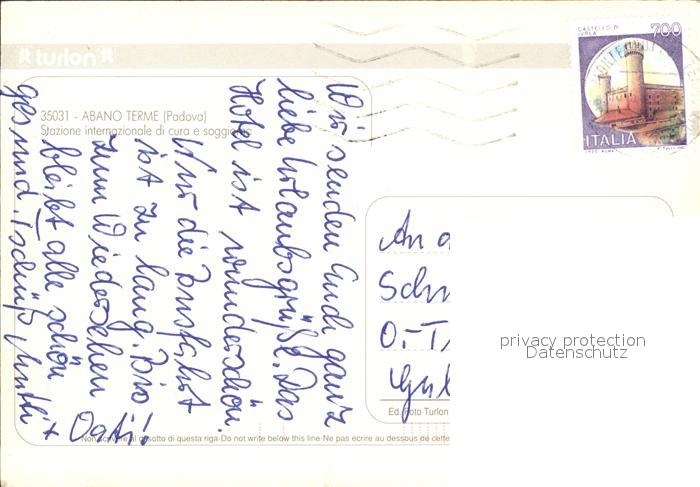 turlon
CASTELLO DI
IVREA
700
ITALIA
35031 - ABANO TERME (Padova)
Stazione internazionale di cura e soggiorno
Wir senden Euch ganz
liebe Urlaubsgrüße. Das
Hotel ist wunderschön.
Nur die Busfahrt
ist zu lang. Bis
zum Wiedersehen
bleibt alle schön
gesund. Tschüß Mutti +
Opti!
An
Sch
privacy protection
Datenschutz
Ed. Foto Turlon
Non scrivere al disotto di questa riga-Do not write below this line-Ne pas écrire au dessous de cette